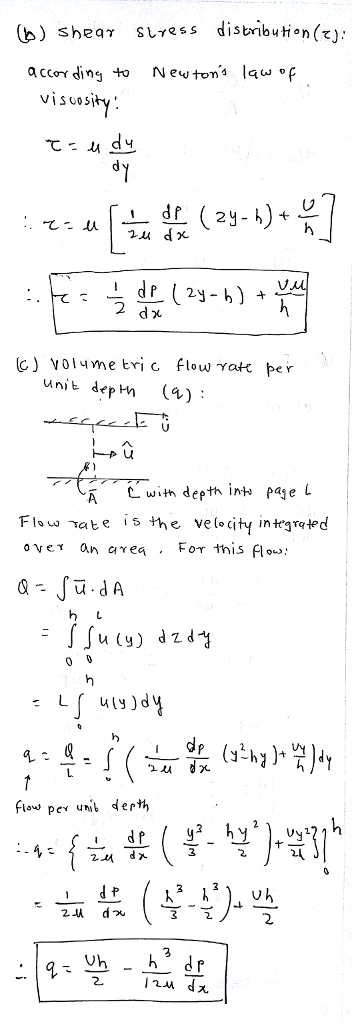 (b) shear stress distribution (τ):
according to Newton's law of
viscosity:
τ = μ du/dy
∴ τ = μ [ 1/2μ dp/dx (2y-h) + U/h ]
∴ τ = 1/2 dp/dx (2y-h) + Uμ/h
(c) volumetric flow rate per
unit depth (q):
U
û
Ā with depth into page L
Flow rate is the velocity integrated
over an area. For this flow:
Q = ∫ū·dA
= ∫₀ʰ ∫₀ᴸ u(y) dz dy
= L ∫₀ʰ u(y) dy
q = Q/L = ∫₀ʰ ( 1/2μ dp/dx (y²-hy) + Uy/h ) dy
↑
flow per unit depth
∴ q = { 1/2μ dp/dx ( y³/3 - hy²/2 ) + Uy²/2h }₀ʰ
= 1/2μ dp/dx ( h³/3 - h³/2 ) + Uh/2
∴ q = Uh/2 - h³/12μ dp/dx